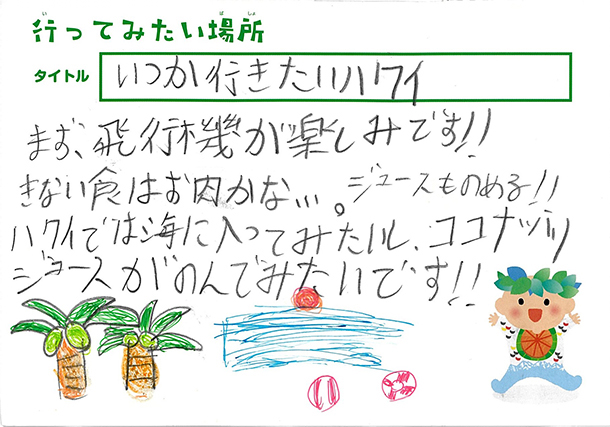 行ってみたい場所
タイトル いつか行きたいハワイ
まず、飛行機が楽しみです!!
きない食はお肉かな…。ジュースものめる!!
ハワイでは海に入ってみたいし、ココナッツ
ジュースがのんでみたいです!!